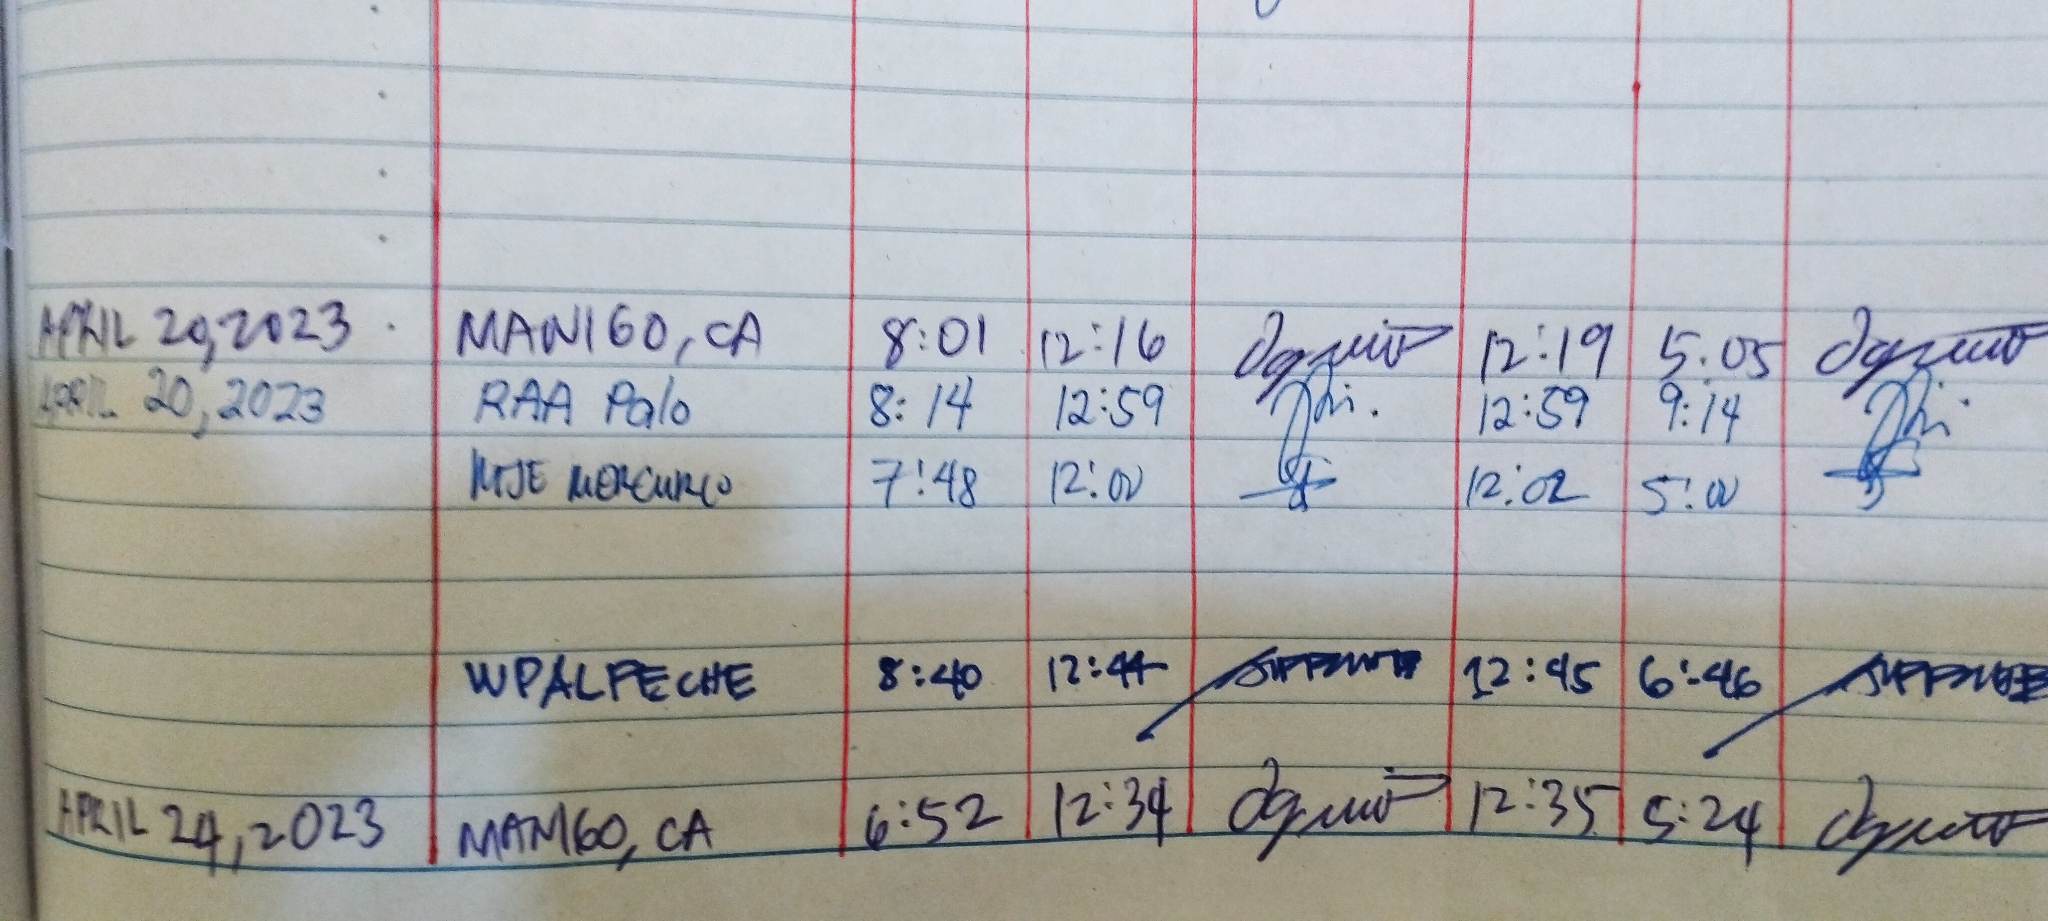 APRIL 20, 2023 MANIGO, CA 8:01 12:16 12:19 5:05
APRIL 20, 2023 RAA Palo 8:14 12:59 12:59 9:14
MJE MERCURIO 7:48 12:00 12:02 5:00
WPALPECHE 8:40 12:44 12:45 6:46
APRIL 24, 2023 MANIGO, CA 6:52 12:34 12:35 5:24